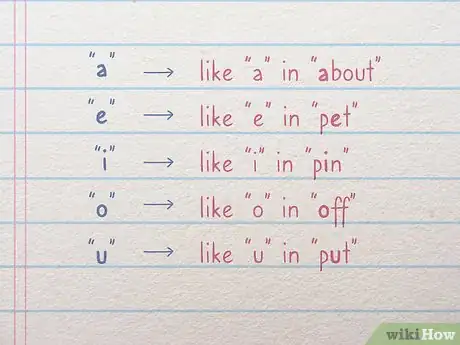 "a" → like "a" in "about"
"e" → like "e" in "pet"
"i" → like "i" in "pin"
"o" → like "o" in "off"
"u" → like "u" in "put"
wikiHow